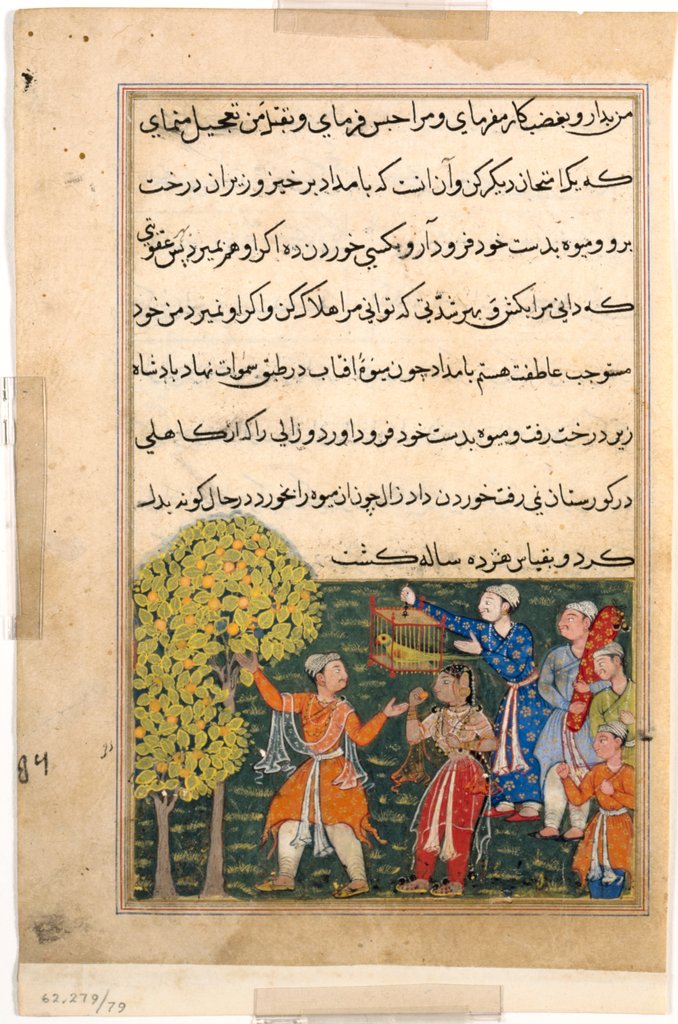 من بدار و بغضب کار مفرمای و مرا حبس فرمای و بقتل من تعجیل منمای
که یک امتحان دیگر کن و آن انست که بامداد برخیز و زیر ان درخت
برو و میوه بدست خود فرود آر و بکسی خوردن ده اگر او هم بمیرد پس عقوبتی
که دانی مرا بکش و بهر شدتی که توانی مرا هلاک کن و اگر او نمیرد من خود
مستوجب عاطفت هستم بامداد چون میوهٔ افتاب در طبق سموات نهاد بادشاه
زیر درخت رفت و میوه بدست خود فرود اورد و زالی را که از کاهلی
در کورستان می رفت خوردن داد زال چون ان میوه را بخورد در حال کونه بدل
کرد و بقیاس هژده ساله کشت
84
62.279/79